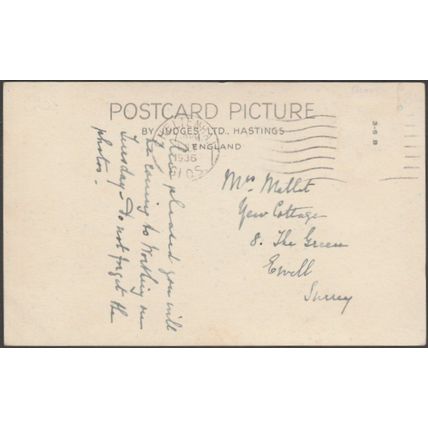 POSTCARD PICTURE
BY JUDGES LTD., HASTINGS
ENGLAND
1936
3-6 B
pleased you will
be coming to Worthing on
Tuesday - Do not forget the
photos.
Mrs Mallet
Yew Cottage
8. The Green
Ewell
Surrey